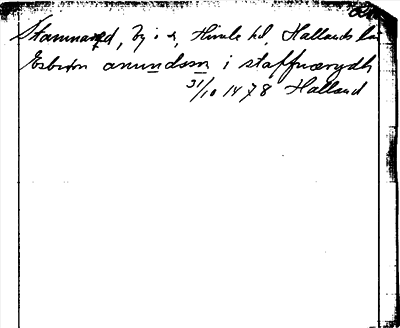 Stamnared, by i s, Himle hd, Hallands län
Esbiörn anundsson i staffnærydh
31/10 1478 Halland